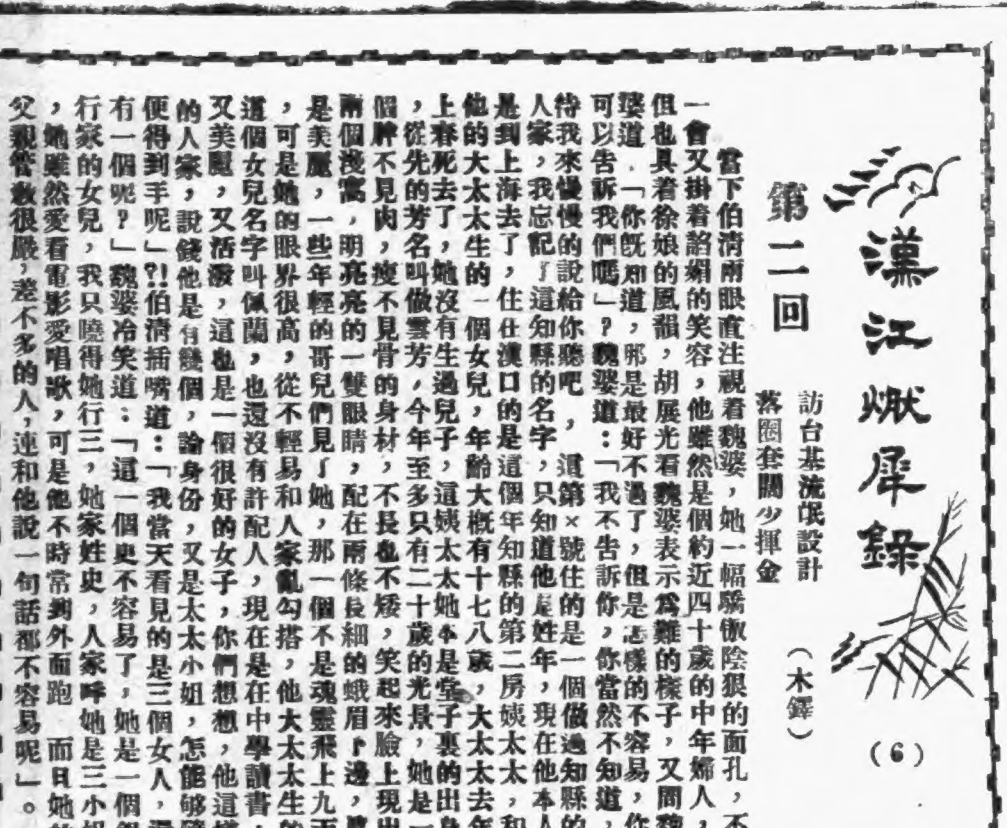 漢江燃犀錄
(6)
第二回
訪台基流氓設計
落圈套闊少揮金
(木鐸)
當下伯清兩眼直注視着魏婆,她一幅驕傲陰狠的面孔,不
一會又掛着諂媚的笑容,他雖然是個約近四十歲的中年婦人,
但也具着徐娘的風韻,胡展光看魏婆表示爲難的樣子,又問魏
婆道.「你既知道,那是最好不過了,但是怎樣的不容易,你
可以告訴我們嗎」?魏婆道:「我不告訴你,你當然不知道,
待我來慢慢的說給你聽吧,這第×號住的是一個做過知縣的
人家,我忘記了這知縣的名字,只知道他是姓年,現在他本人
是到上海去了,住在漢口的是這個年知縣的第二房姨太太,和
他的大太太生的一個女兒,年齡大概有十七八歲,大太太去年
上春死去了,她沒有生過兒子,這姨太太她本是堂子裏的出身
,從先的芳名叫做雲芳,今年至多只有二十歲的光景,她是一
個胖不見肉,瘦不見骨的身材,不長也不矮,笑起來臉上現出
兩個淺窩,明亮亮的一雙眼睛,配在兩條長細的蛾眉下邊,
是美麗,一些年輕的哥兒們見了她,那一個不是魂靈飛上九
,可是她的眼界很高,從不輕易和人家亂勾搭,他大太太生的
道個女兒名字叫佩蘭,也還沒有許配人,現在是在中學讀書,
又美麗,又活潑,這也是一個很好的女子,你們想想,他這樣
的人家,說錢他是有幾個,論身份,又是太太小姐,怎能够
便得到手呢」?!伯清插嘴道:「我當天看見的是三個女人,還
有一個呢?」魏婆冷笑道:「這一個更不容易了,她是一個銀
行家的女兒,我只曉得她行三,她家姓史,人家呼她是三小姐
,她雖然愛看電影愛唱歌,可是他不時常到外面跑 而且她的
父親管教很嚴,差不多的人,連和他說一句話都不容易呢」。